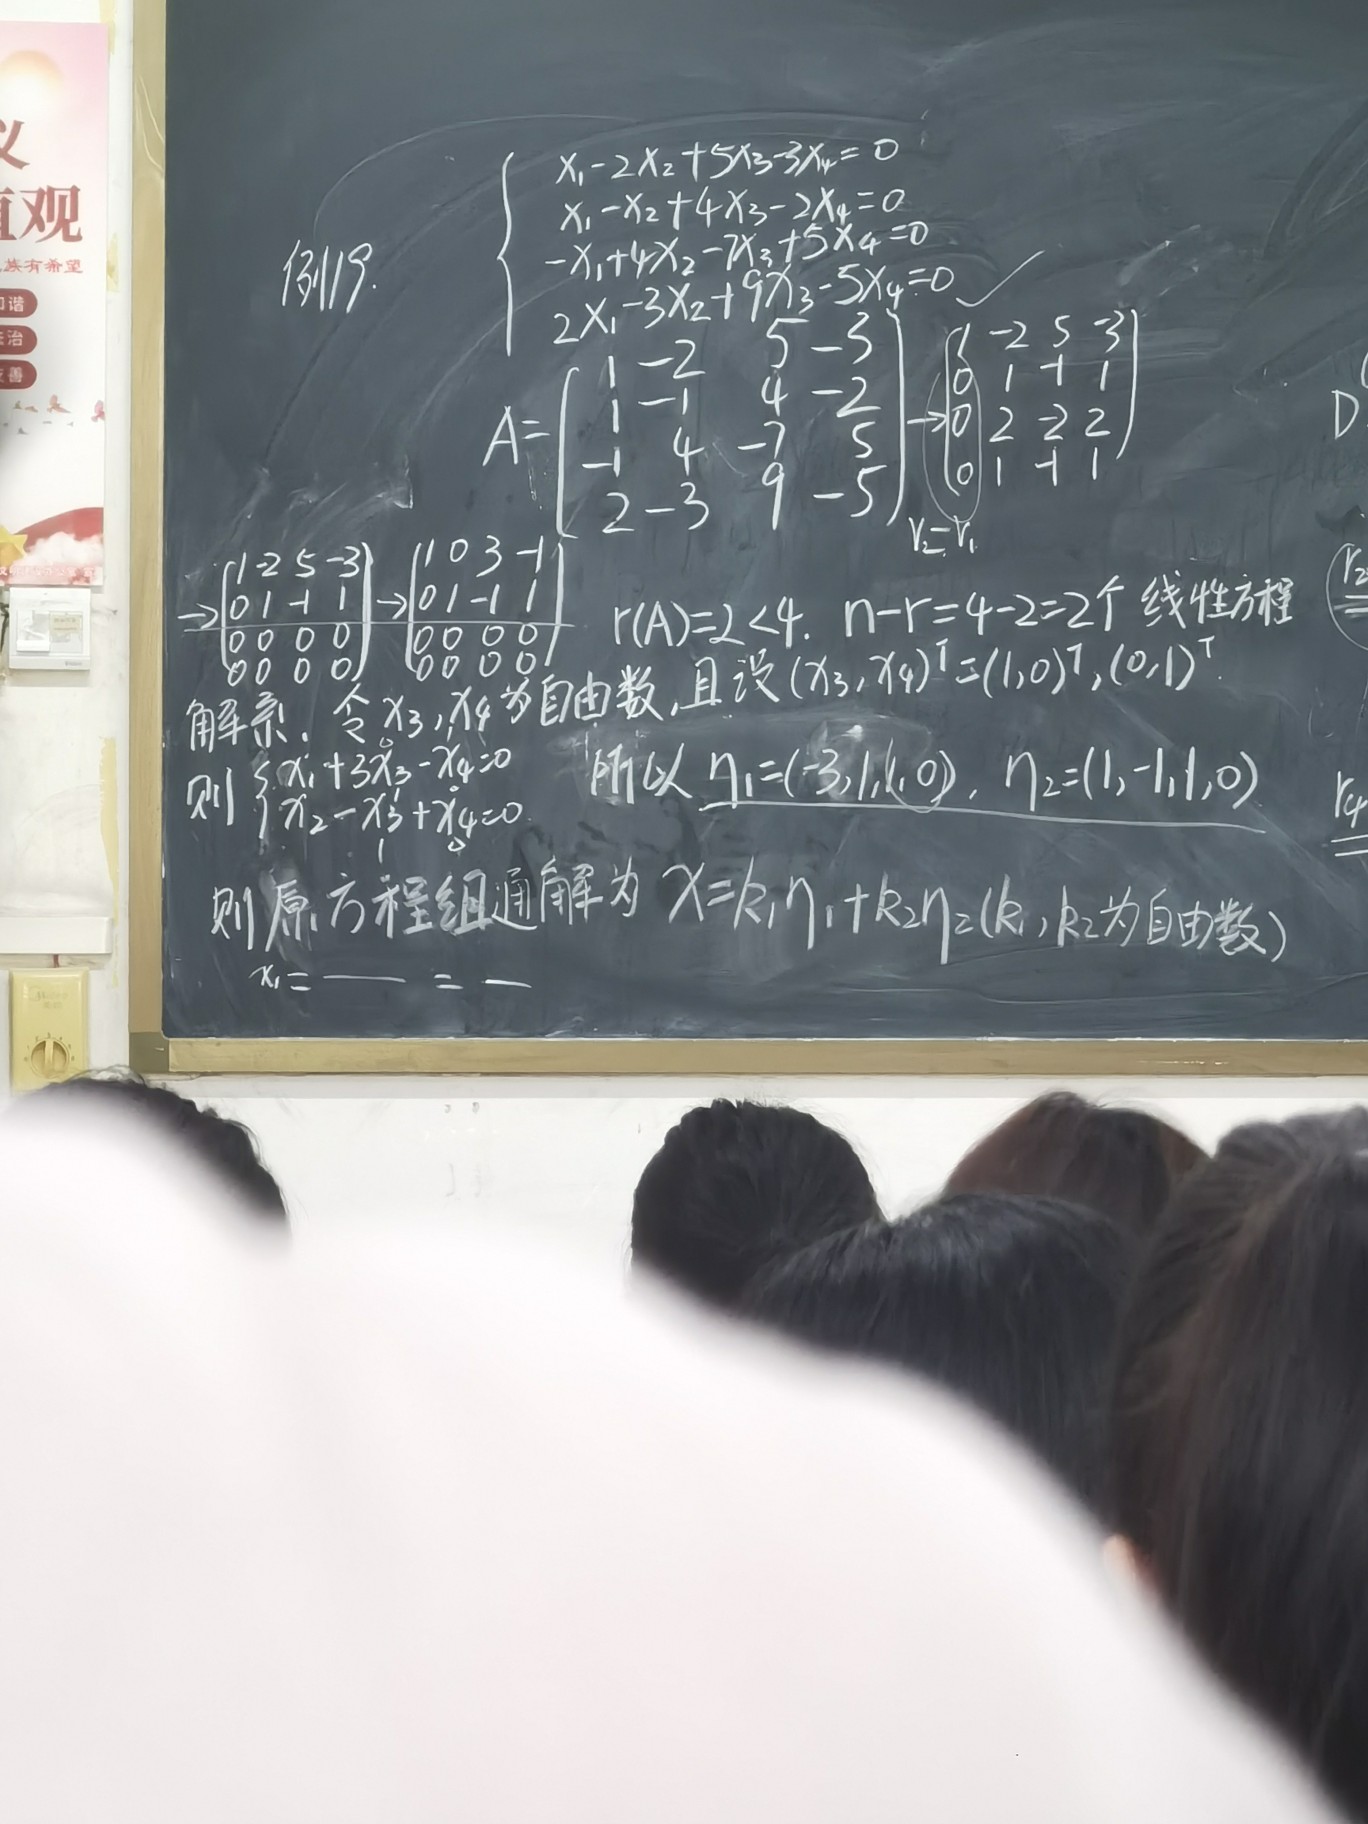 义
直观
族有希望
和谐
法治
友善
例19.
x₁-2x₂+5x₃-3x₄=0
x₁-x₂+4x₃-2x₄=0
-x₁+4x₂-7x₃+5x₄=0
2x₁-3x₂+9x₃-5x₄=0 ✓
A=
1 -2 5 -3
1 -1 4 -2
-1 4 -7 5
2 -3 9 -5
→
1 -2 5 -3
0 1 -1 1
0 2 -2 2
0 1 -1 1
r₂-r₁
→
1 -2 5 -3
0 1 -1 1
0 0 0 0
0 0 0 0
→
1 0 3 -1
0 1 -1 1
0 0 0 0
0 0 0 0
r(A)=2<4. n-r=4-2=2个 线性方程
解系. 令x₃,x₄为自由数,且设(x₃,x₄)ᵀ=(1,0)ᵀ,(0,1)ᵀ.
则 { x₁+3x₃-x₄=0
x₂-x₃+x₄=0
1 0
所以 η₁=(-3,1,1,0), η₂=(1,-1,1,0)
则原方程组通解为 x=k₁η₁+k₂η₂(k₁,k₂为自由数)
x₁= — = —
D
r₂
r₄